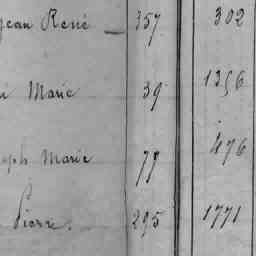 Jean René — 357 302
i Marie 39 1356
eph Marie 77 476
Pierre. 295 1771